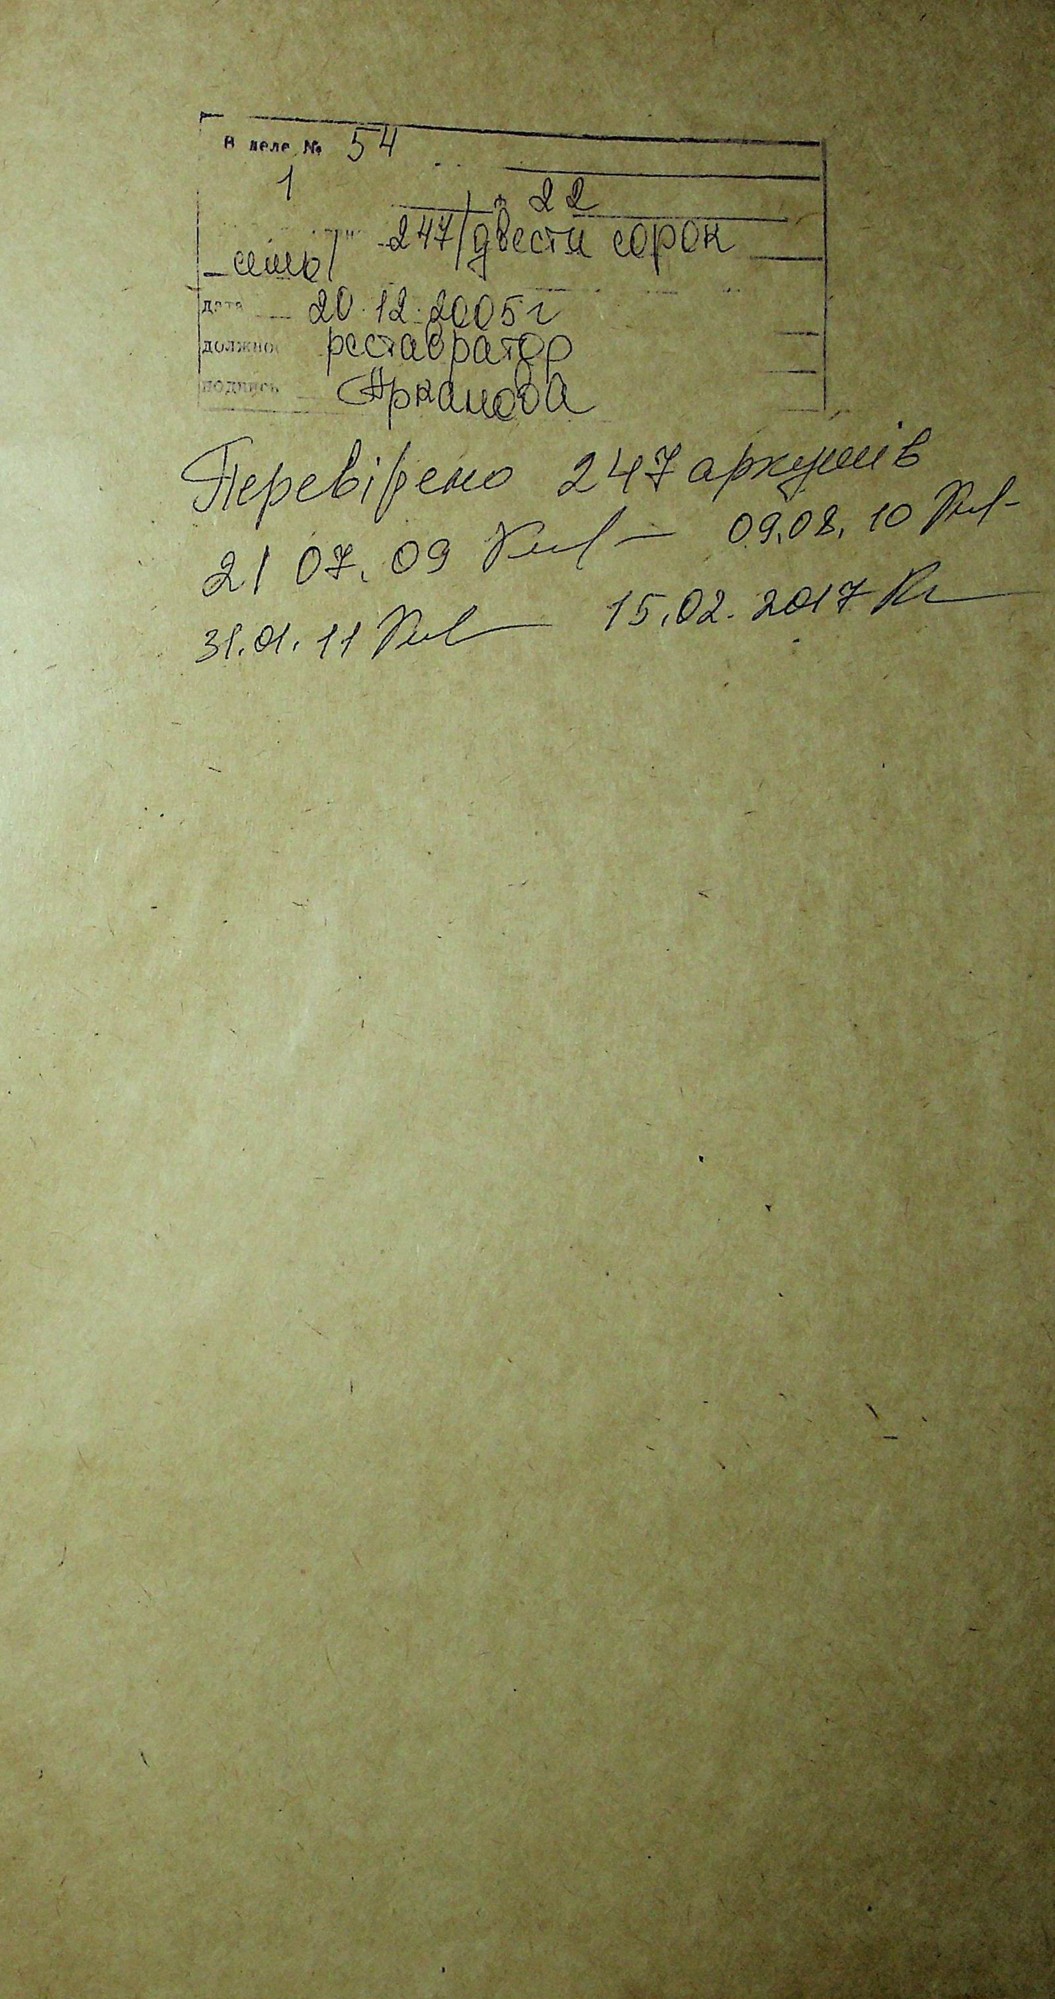 В деле № 54
1 22
247/двести сорок
семь/
дата 20.12.2005г
должнос реставратор
подпись Арканова
Перевірено 247 аркушів
21 07. 09 09.08.10
31.01.11 15.02.2017